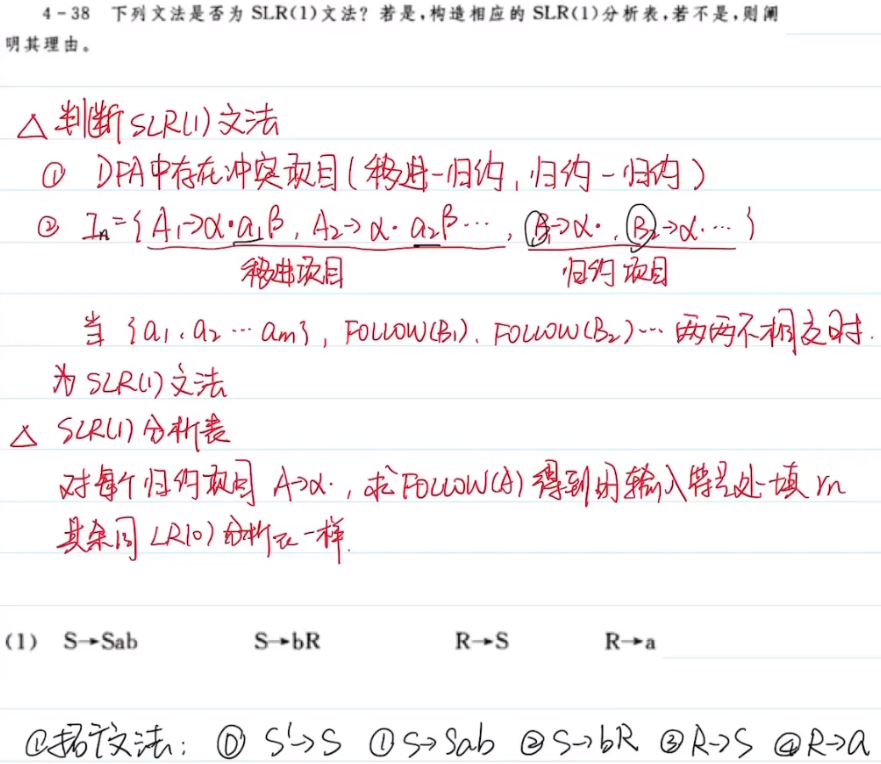 4-38 下列文法是否为 SLR(1)文法? 若是,构造相应的 SLR(1)分析表,若不是,则阐
明其理由。
△ 判断SLR(1)文法
① DFA中存在冲突项目(移进-归约,归约-归约)
② In={A₁→α·a₁β, A₂→α·a₂β…, B₁→α·, B₂→α·…}
移进项目 归约项目
当 {a₁, a₂ … am}, FOLLOW(B₁), FOLLOW(B₂)… 两两不相交时.
为 SLR(1)文法
△ SLR(1)分析表
对每个归约项目 A→α·, 求FOLLOW(A) 得到的输入符号处填 rn
其余同 LR(0)分析表一样.
(1) S→Sab S→bR R→S R→a
①拓广文法: ⓪ S'→S ①S→Sab ②S→bR ③R→S ④R→a